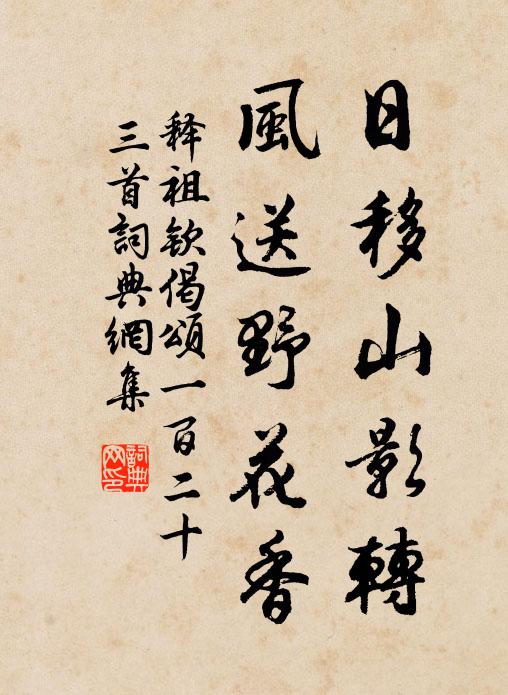 日移山影轉
風送野花香
释祖钦偈頌一百二十
三首詞典網集
詞典
网印